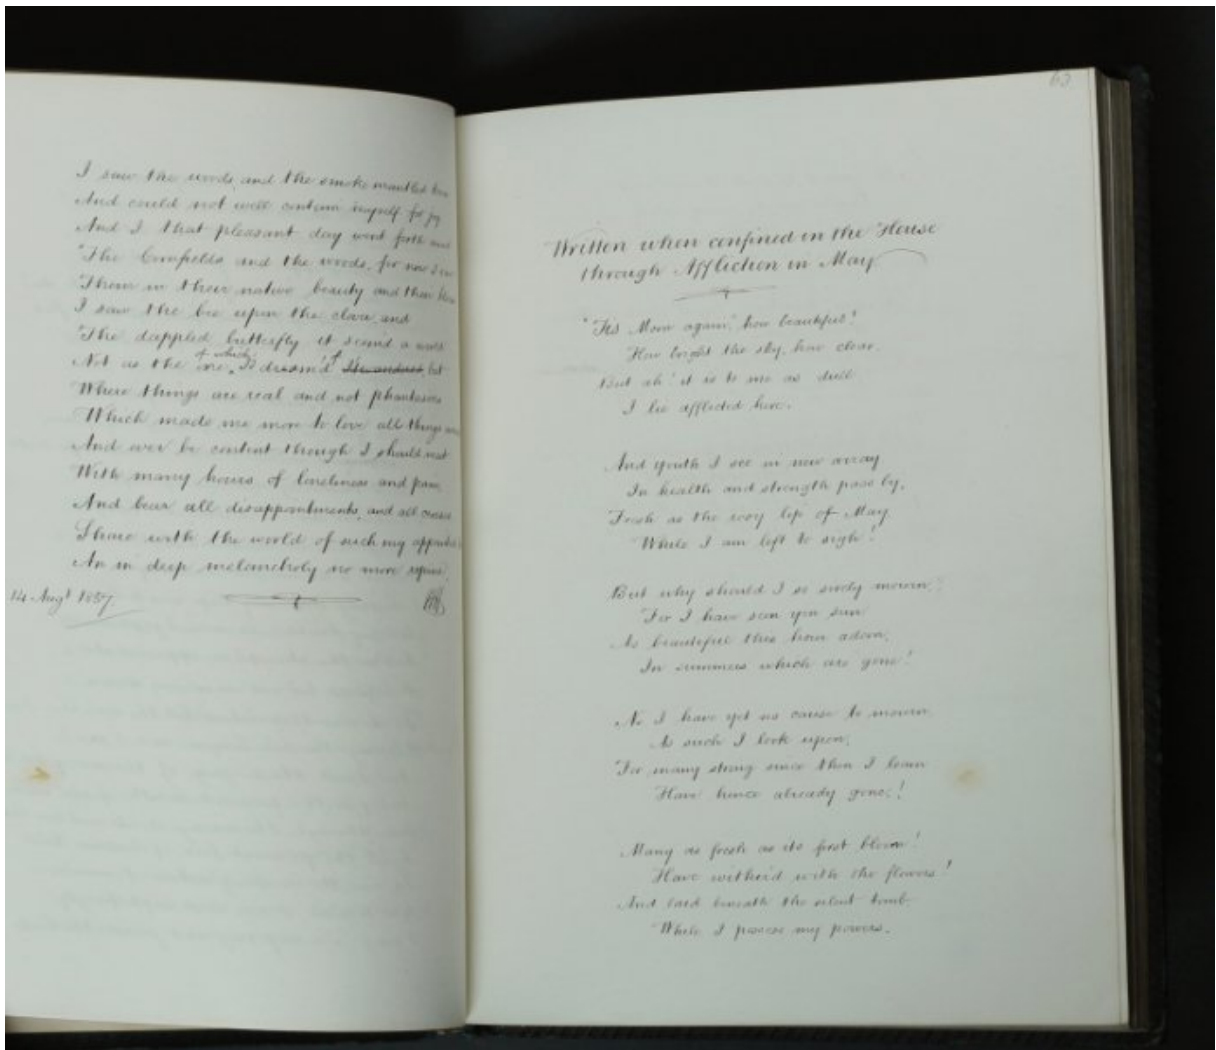 I saw the woods, and the smoke mantled
And could not well contain myself for joy
And I that pleasant day went forth and
The Cornfields and the woods, for now I
Them in their native beauty and than
I saw the bee upon the clover, and
The dappled butterfly it seem'd a world
Not as the one, of which I dream'd of but
Where things are real and not phantasies
Which made me more to love all things
And ever be content though I should
With many hours of loneliness and pain
And bear all disappointments, and all crosses
Share with the world of such my
An in deep melancholy no more repine.
14 Augt 1857.
63
Written when confined in the House
through Affliction in May
"Tis Morn again," how beautiful!
How bright the sky, how clear.
But ah! it is to me as dull
I lie afflicted here.
And youth I see in new array
In health and strength pass by,
Fresh as the rosy lip of May
While I am left to sigh!
But why should I so sorely mourn;
For I have seen yon sun
As beautiful this hour adorn,
In summers which are gone!
No I have yet no cause to mourn
As such I look upon;
For many strong since then I learn
Have hence already gone!
Many as fresh as its first bloom!
Have wither'd with the flowers!
And laid beneath the silent tomb
While I possess my powers.